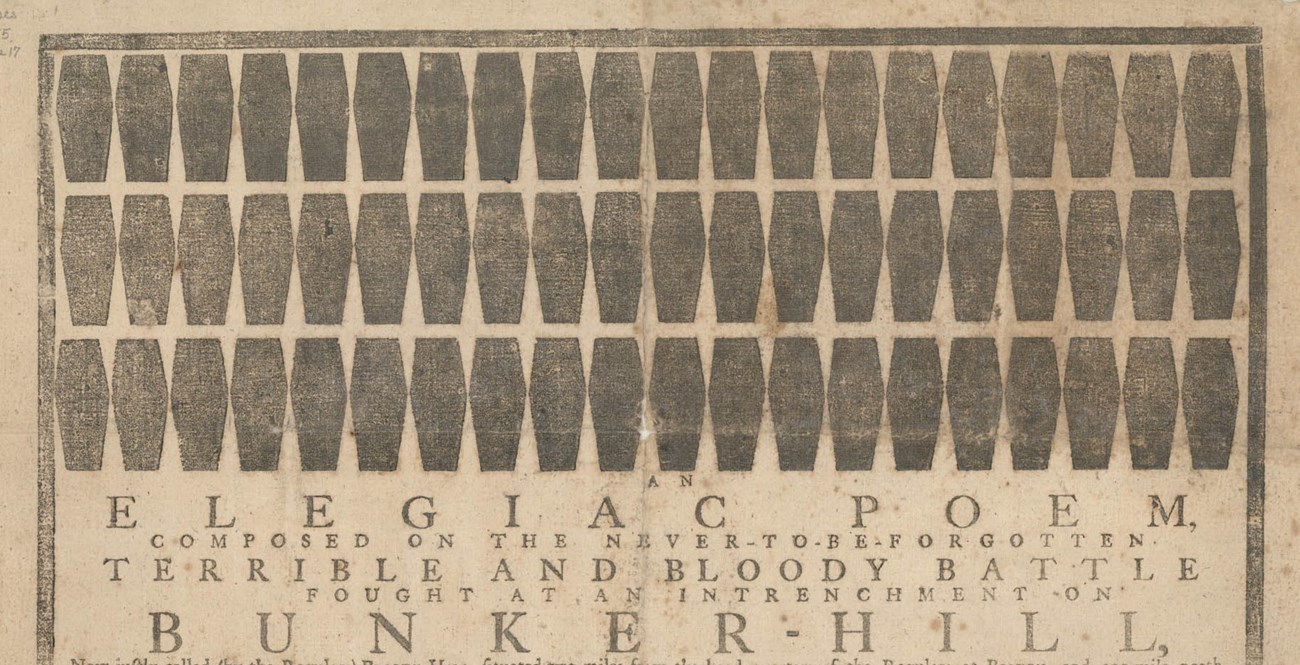 17
AN
ELEGIAC POEM,
COMPOSED ON THE NEVER-TO-BE-FORGOTTEN
TERRIBLE AND BLOODY BATTLE
FOUGHT AT AN INTRENCHMENT ON
BUNKER-HILL,